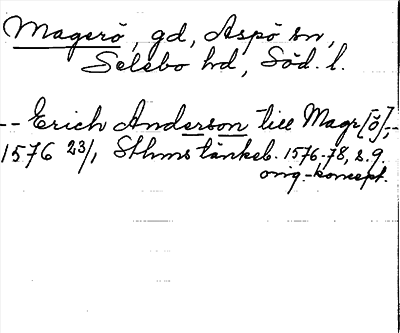 Magerö, gd, Aspö sn,
Selebo hd, Söd. l.
-- Erich Anderson till Magr[ö],-
1576 23/1 Sthms tänkeb. 1576-78, s. 9.
orig.-koncept.